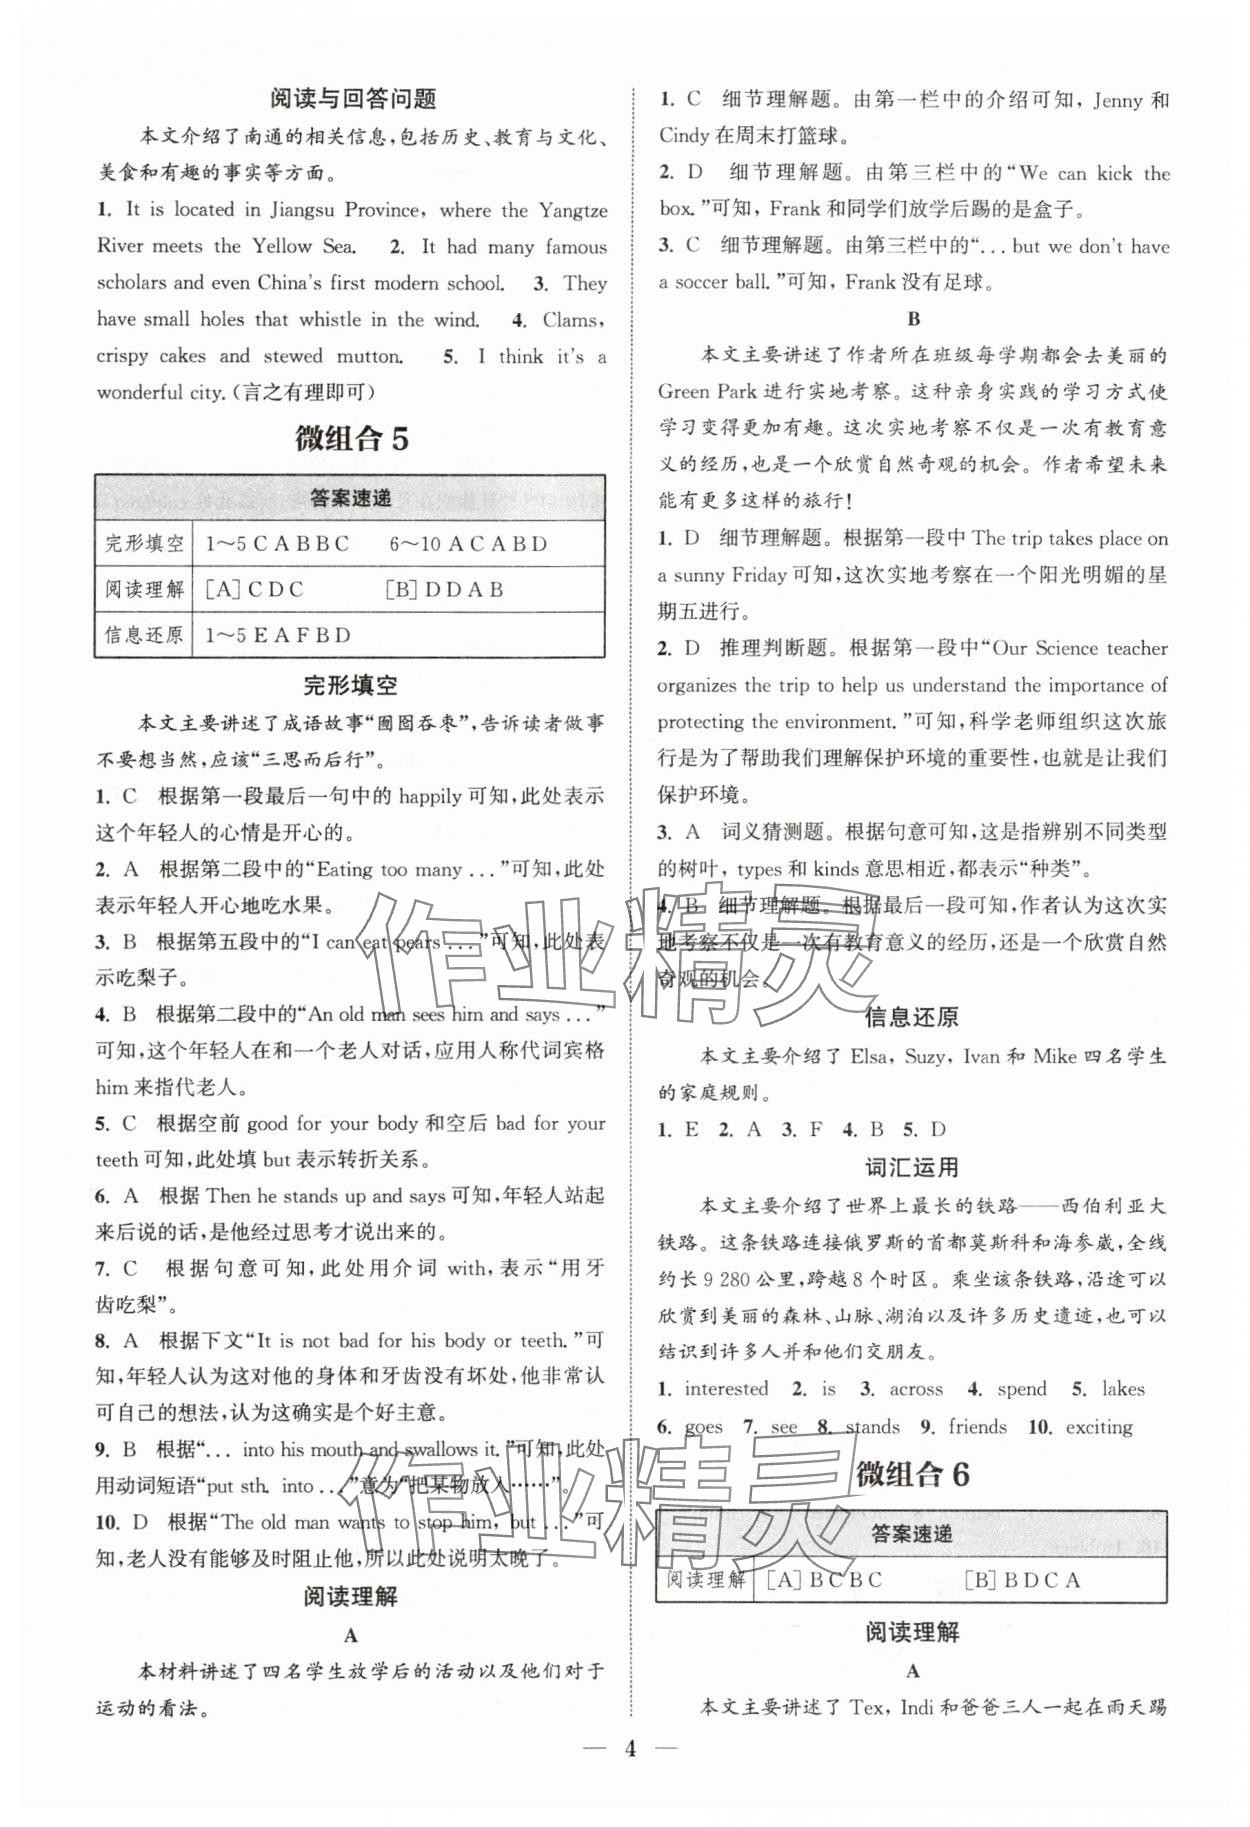 阅读与回答问题
本文介绍了南通的相关信息,包括历史、教育与文化、
美食和有趣的事实等方面。
1. It is located in Jiangsu Province, where the Yangtze
River meets the Yellow Sea. 2. It had many famous
scholars and even China's first modern school. 3. They
have small holes that whistle in the wind. 4. Clams,
crispy cakes and stewed mutton. 5. I think it's a
wonderful city.(言之有理即可)
微组合 5
答案速递
完形填空 1～5 C A B B C 6～10 A C A B D
阅读理解 [A] C D C [B] D D A B
信息还原 1～5 E A F B D
完形填空
本文主要讲述了成语故事“囫囵吞枣”,告诉读者做事
不要想当然,应该“三思而后行”。
1. C 根据第一段最后一句中的 happily 可知,此处表示
这个年轻人的心情是开心的。
2. A 根据第二段中的“Eating too many ...”可知,此处
表示年轻人开心地吃水果。
3. B 根据第五段中的“I can eat pears ...”可知,此处表
示吃梨子。
4. B 根据第二段中的“An old man sees him and says ...”
可知,这个年轻人在和一个老人对话,应用人称代词宾格
him 来指代老人。
5. C 根据空前 good for your body 和空后 bad for your
teeth 可知,此处填 but 表示转折关系。
6. A 根据 Then he stands up and says 可知,年轻人站起
来后说的话,是他经过思考才说出来的。
7. C 根据句意可知,此处用介词 with,表示“用牙
齿吃梨”。
8. A 根据下文“It is not bad for his body or teeth.”可
知,年轻人认为这对他的身体和牙齿没有坏处,他非常认
可自己的想法,认为这确实是个好主意。
9. B 根据“... into his mouth and swallows it.”可知,此处
用动词短语“put sth. into ...”意为“把某物放入……”。
10. D 根据“The old man wants to stop him, but ...”可
知,老人没有能够及时阻止他,所以此处说明太晚了。
阅读理解
A
本材料讲述了四名学生放学后的活动以及他们对于
运动的看法。
1. C 细节理解题。由第一栏中的介绍可知,Jenny 和
Cindy 在周末打篮球。
2. D 细节理解题。由第三栏中的“We can kick the
box.”可知,Frank 和同学们放学后踢的是盒子。
3. C 细节理解题。由第三栏中的“... but we don't have
a soccer ball.”可知,Frank 没有足球。
B
本文主要讲述了作者所在班级每学期都会去美丽的
Green Park 进行实地考察。这种亲身实践的学习方式使
学习变得更加有趣。这次实地考察不仅是一次有教育意
义的经历,也是一个欣赏自然奇观的机会。作者希望未来
能有更多这样的旅行!
1. D 细节理解题。根据第一段中 The trip takes place on
a sunny Friday 可知,这次实地考察在一个阳光明媚的星
期五进行。
2. D 推理判断题。根据第一段中“Our Science teacher
organizes the trip to help us understand the importance of
protecting the environment.”可知,科学老师组织这次旅
行是为了帮助我们理解保护环境的重要性,也就是让我们
保护环境。
3. A 词义猜测题。根据句意可知,这是指辨别不同类型
的树叶,types 和 kinds 意思相近,都表示“种类”。
4. B 细节理解题。根据最后一段可知,作者认为这次实
地考察不仅是一次有教育意义的经历,还是一个欣赏自然
奇观的机会。
信息还原
本文主要介绍了 Elsa, Suzy, Ivan 和 Mike 四名学生
的家庭规则。
1. E 2. A 3. F 4. B 5. D
词汇运用
本文主要介绍了世界上最长的铁路——西伯利亚大
铁路。这条铁路连接俄罗斯的首都莫斯科和海参崴,全线
约长 9 280 公里,跨越 8 个时区。乘坐该条铁路,沿途可以
欣赏到美丽的森林、山脉、湖泊以及许多历史遗迹,也可以
结识到许多人并和他们交朋友。
1. interested 2. is 3. across 4. spend 5. lakes
6. goes 7. see 8. stands 9. friends 10. exciting
微组合 6
答案速递
阅读理解 [A] B C B C [B] B D C A
阅读理解
A
本文主要讲述了 Tex, Indi 和爸爸三人一起在雨天踢
— 4 —
作业精灵
作业精灵